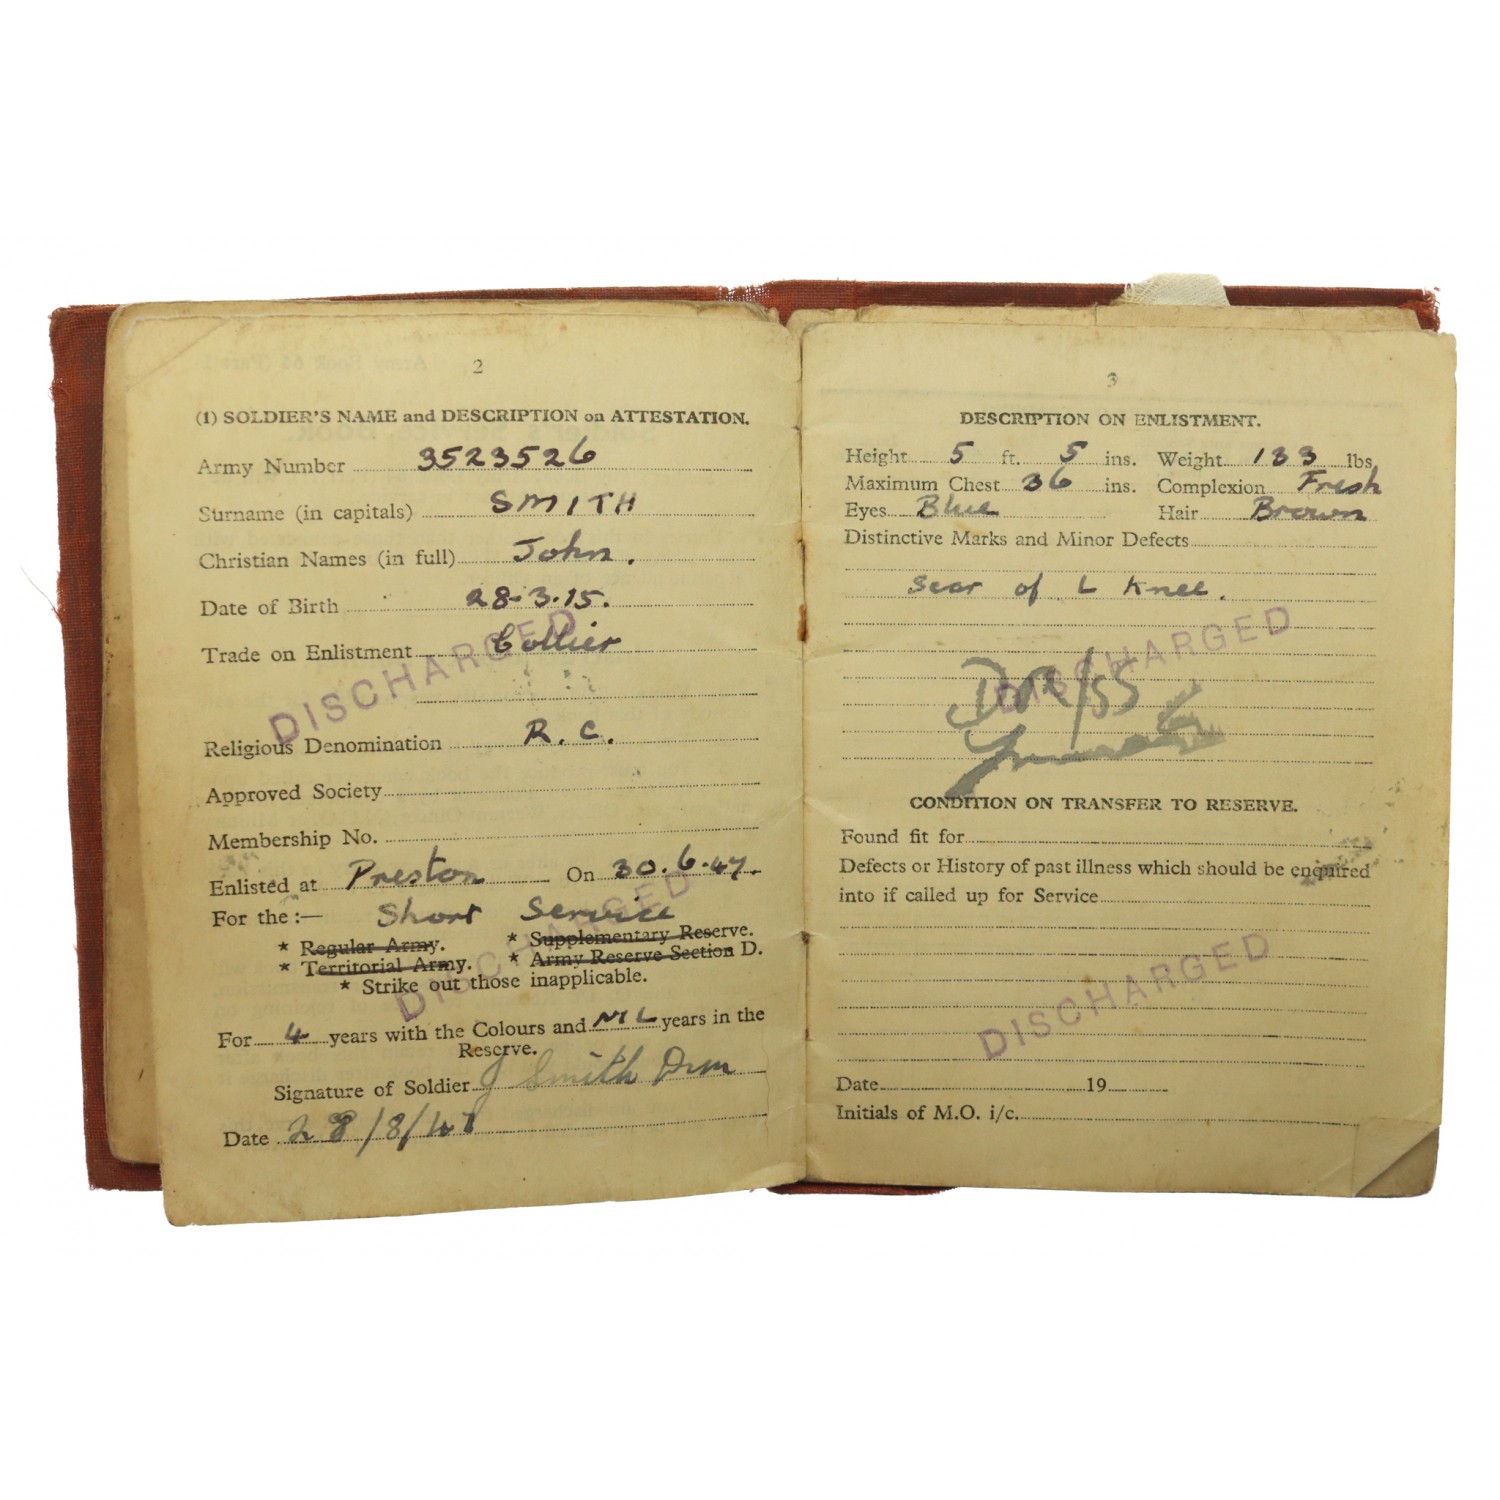 2
(1) SOLDIER'S NAME and DESCRIPTION on ATTESTATION.
Army Number 3523526
Surname (in capitals) SMITH
Christian Names (in full) John.
Date of Birth 28.3.15.
Trade on Enlistment Collier
DISCHARGED
Religious Denomination R.C.
Approved Society
Membership No.
Enlisted at Preston On 30.6.47.
For the :— Short Service
* Regular Army. * Supplementary Reserve.
* Territorial Army. * Army Reserve Section D.
* Strike out those inapplicable.
DISCHARGED
For 4 years with the Colours and NIL years in the
Reserve.
Signature of Soldier J Smith Drm
Date 28/8/47
3
DESCRIPTION ON ENLISTMENT.
Height 5 ft. 5 ins. Weight 133 lbs.
Maximum Chest 36 ins. Complexion Fresh
Eyes Blue Hair Brown
Distinctive Marks and Minor Defects
Scar of L Knee.
DISCHARGED
CONDITION ON TRANSFER TO RESERVE.
Found fit for
Defects or History of past illness which should be enquired
into if called up for Service
DISCHARGED
Date 19
Initials of M.O. i/c.